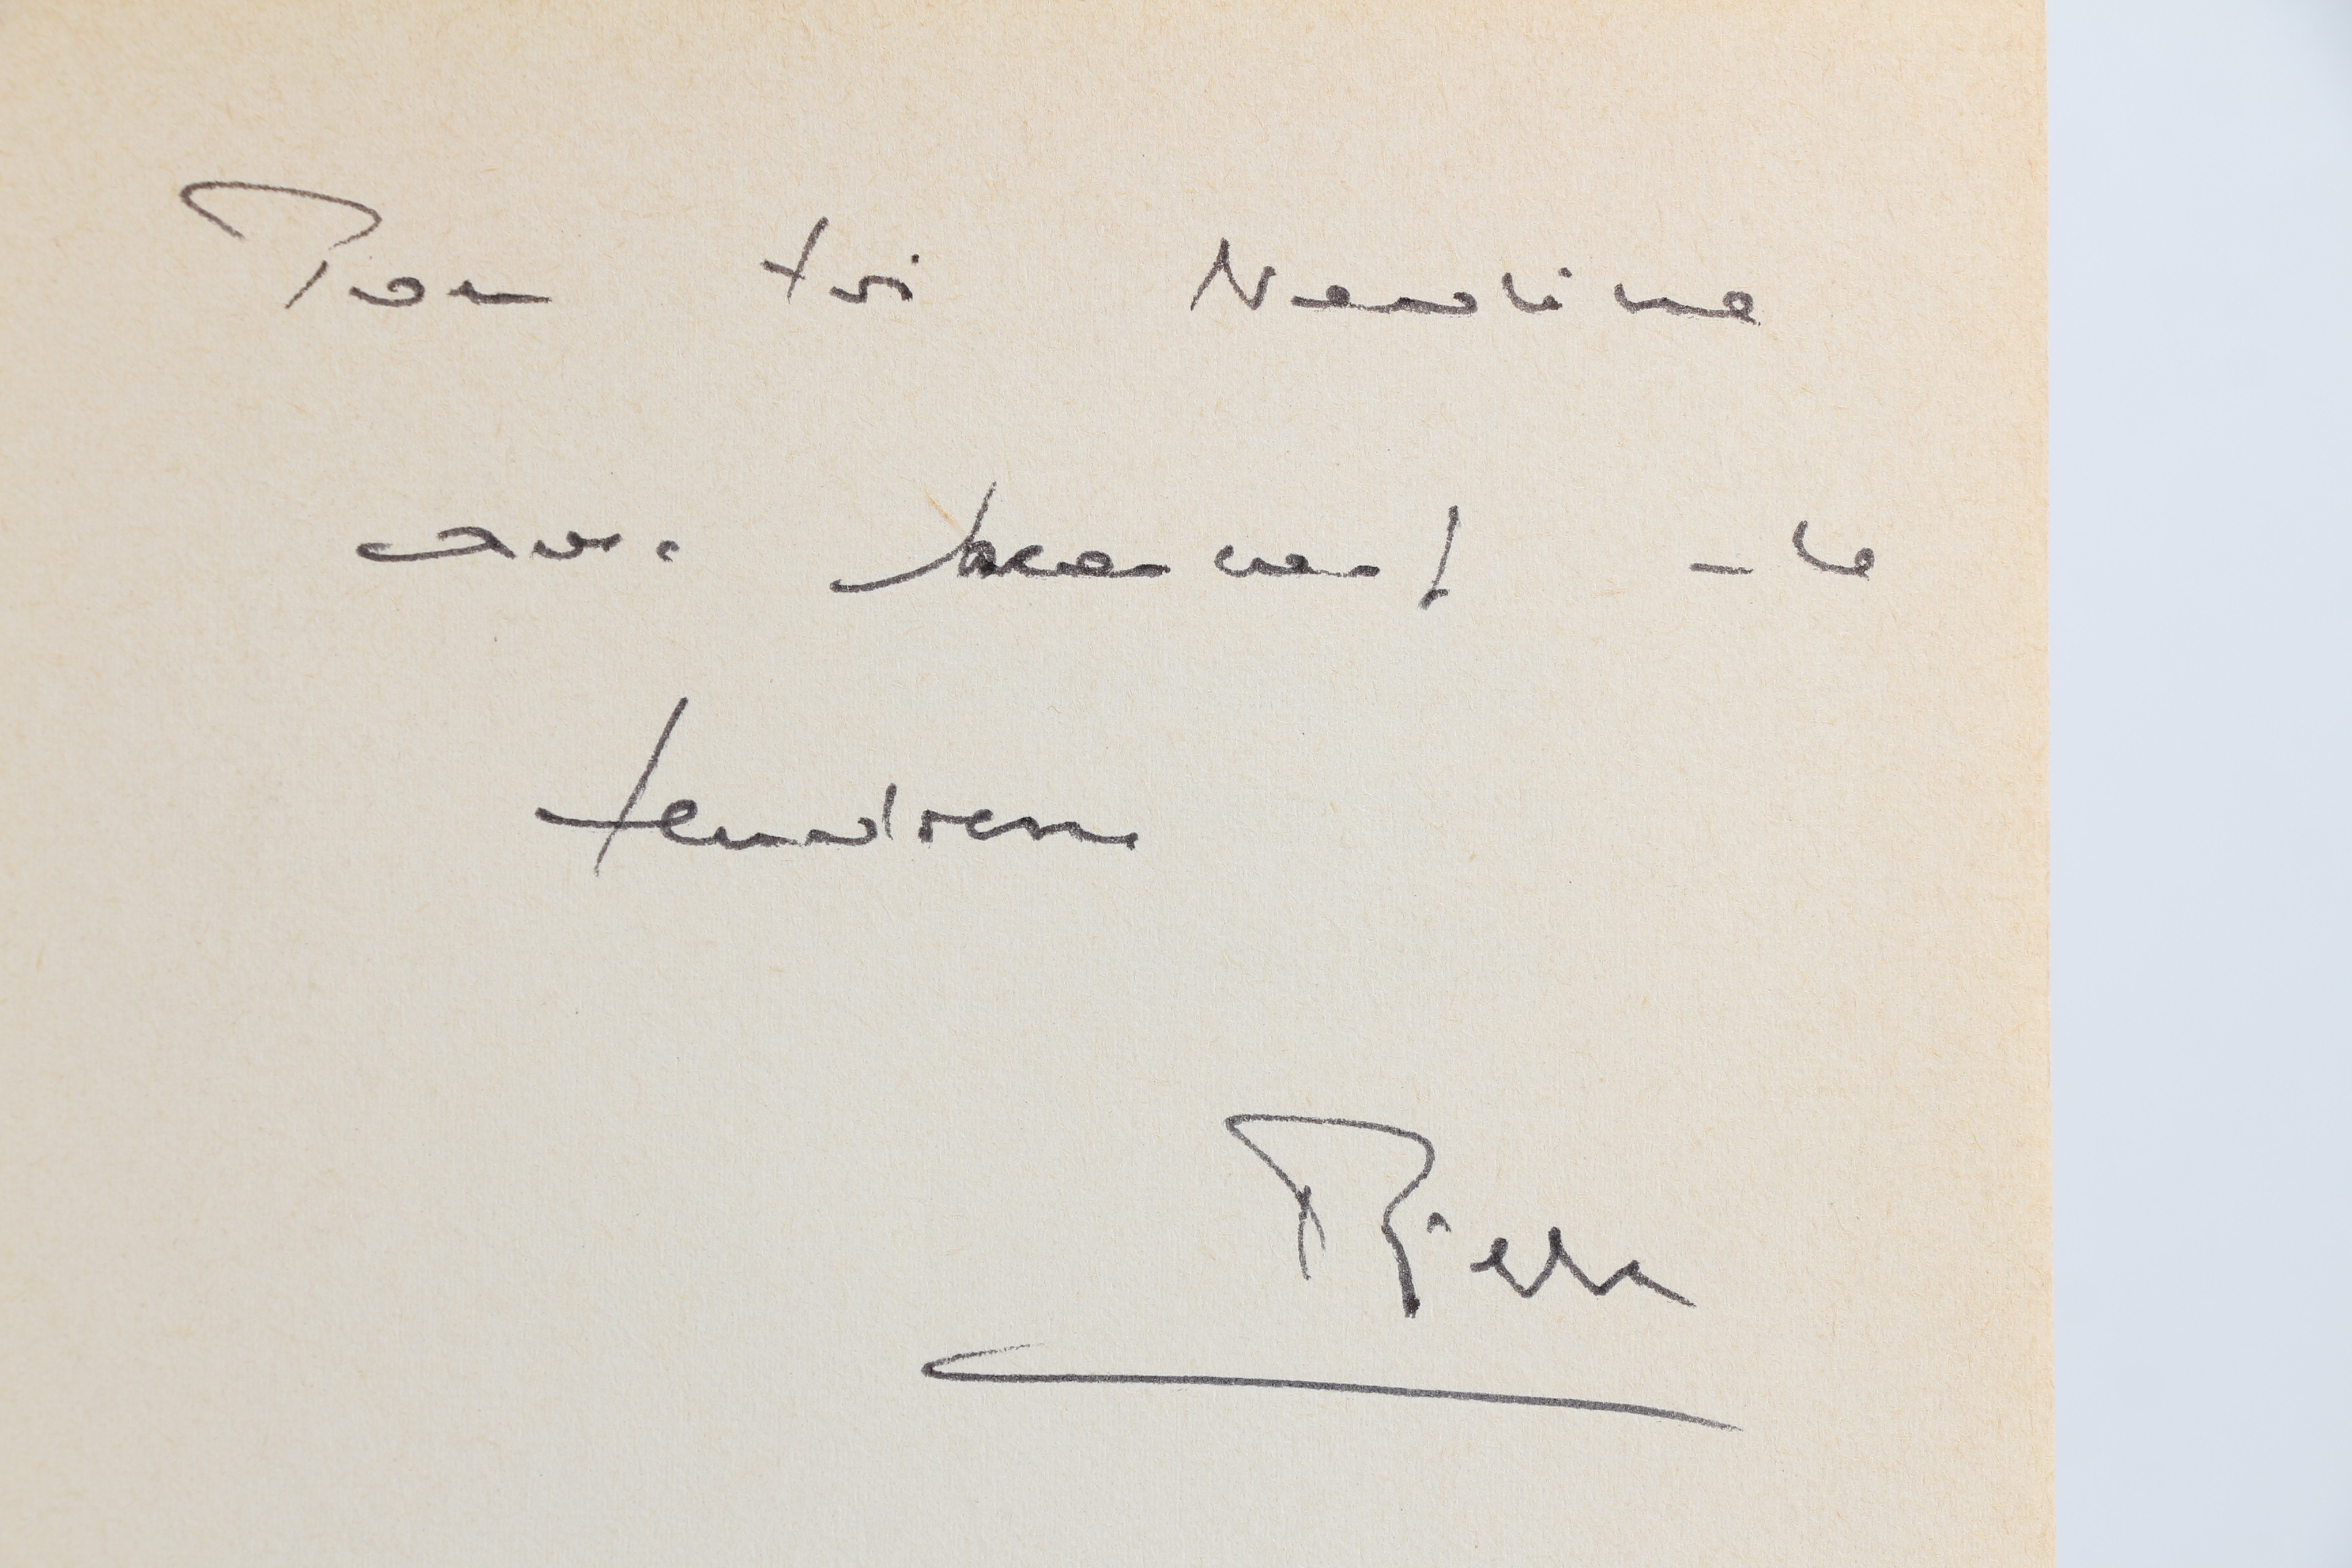 Pour toi Nadine
avec beaucoup de
tendresse